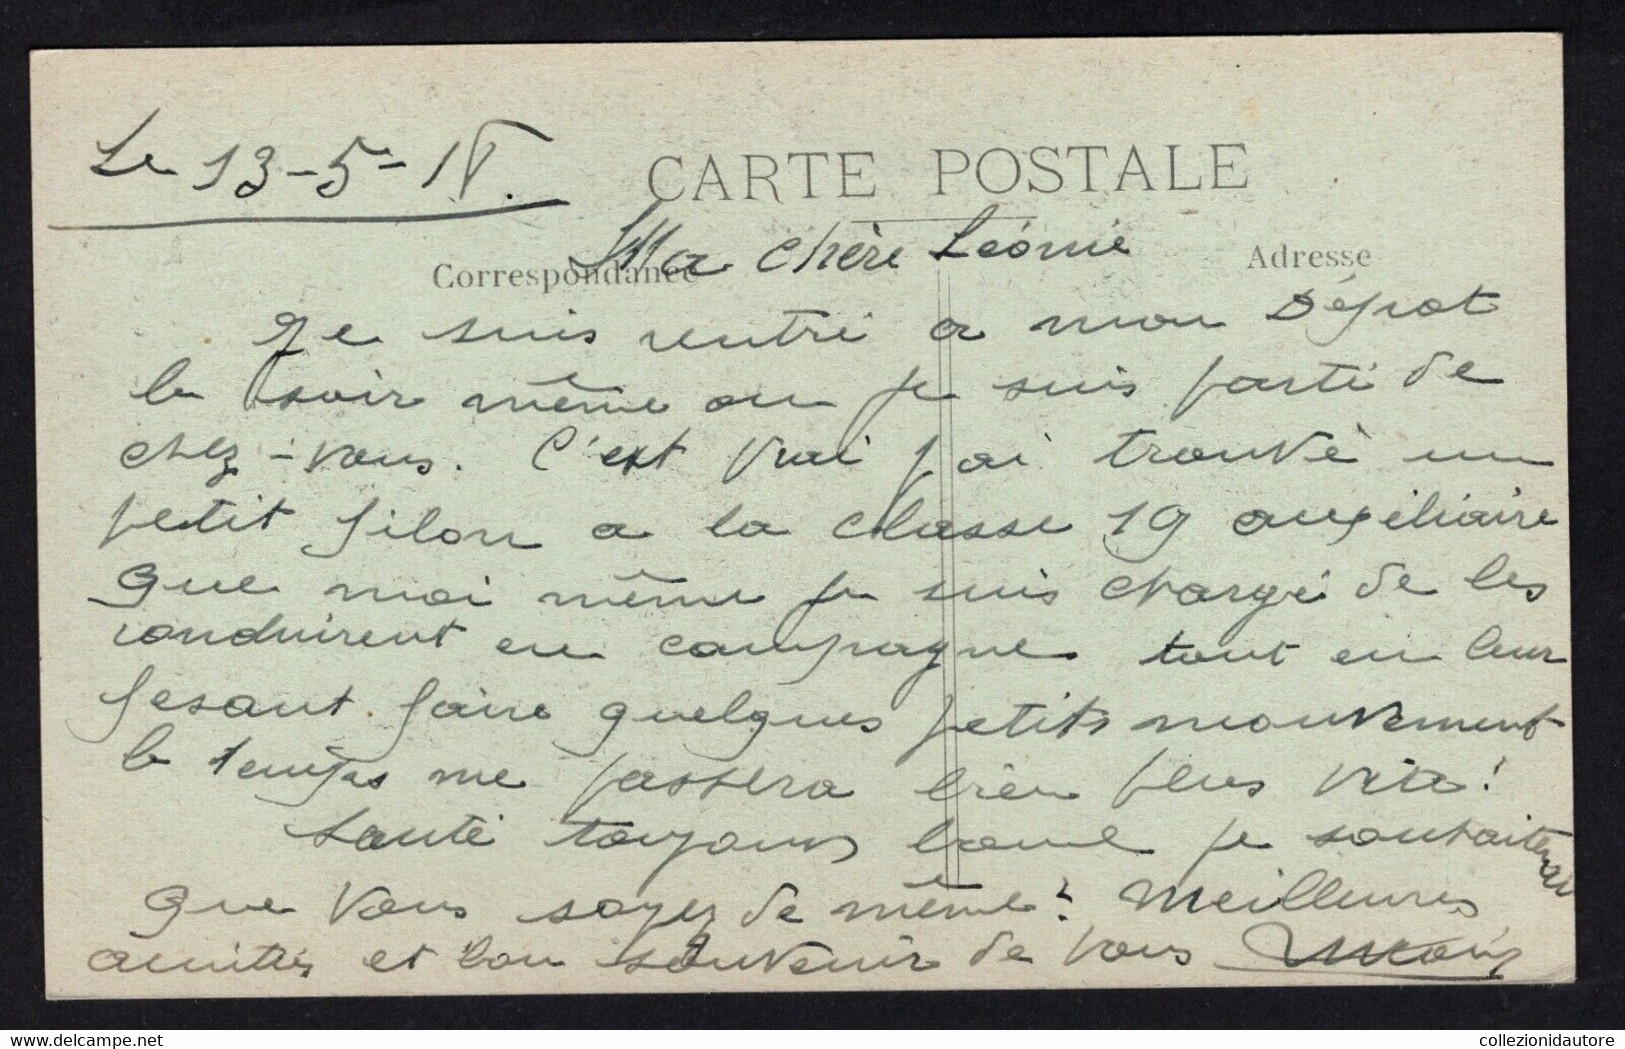 Le 13-5-18.
CARTE POSTALE
Ma chère Léonie
Correspondance
Adresse
Je suis rentré a mon Dépot
le soir même ou je suis parti de
chez-vous. C'est vrai j'ai trouvé un
petit filon a la classe 19 auxiliaire
que moi même je suis chargé de les
conduirent en campagne tout en leur
fesant faire quelques petits mouvement
le temps me passera bien plus vite!
Santé toujours bonne je souhaiterai
que vous soyez de même! Meilleures
amitiés et bon souvenir de vous
www.delcampe.net
collezionidautore